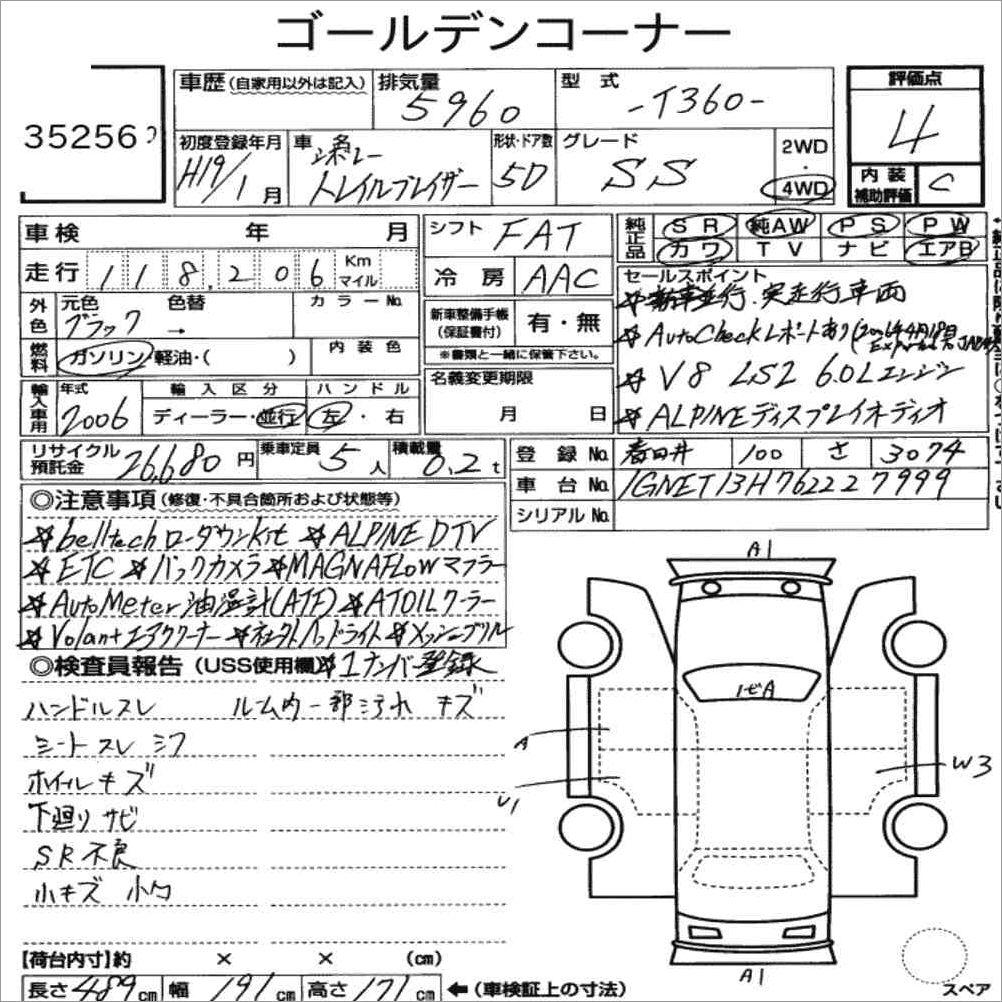 ゴールデンコーナー
35256
車歴(自家用以外は記入) 排気量 5960 型式 -T360- 評価点 4
初度登録年月 H19/1月 車名 シボレー トレイルブレイザー 形状・ドア数 5D グレード SS 2WD・4WD 内装補助評価 C
車検 年 月 シフト FAT 純正品 SR 純AW PS PW
カワ TV ナビ エアB
走行 118,206 Km マイル 冷房 AAC セールスポイント
外色 元色 ブラック 色替 → カラーNo. 新車整備手帳(保証書付) 有・無
※書類と一緒に保管下さい。
☆新車並行、実走行車両
☆AutoCheckレポートあり(2006年4月18日
☆V8 LS2 6.0Lエンジン
☆ALPINEディスプレイオーディオ
燃料 ガソリン・軽油・( ) 内装色
名義変更期限 月 日
輸入車用 年式 2006 輸入区分 ディーラー・並行 ハンドル 左・右
リサイクル預託金 26,680円 乗車定員 5人 積載量 0.2t
登録No. 春日井 100 さ 3074
車台No. 1GNET13H762227999
シリアルNo.
◎注意事項(修復・不具合箇所および状態等)
☆belltechローダウンkit ☆ALPINE DTV
☆ETC ☆バックカメラ☆MAGNAFLOWマフラー
☆AutoMeter油温計(ATF)☆ATOILクーラー
☆Volantエアクリーナー ☆プロジェクトヘッドライト ☆メッシュグリル
◎検査員報告(USS使用欄)☆1ナンバー登録
ハンドルスレ ルーム内一部汚れ キズ
シートスレ シワ
ホイールキズ
下廻りサビ
SR不良
小キズ 小凹
A1
トビA
A
U1
W3
A1
スペア
【荷台内寸】約 × × (cm)
長さ 489cm 幅 191cm 高さ 171cm ←(車検証上の寸法)